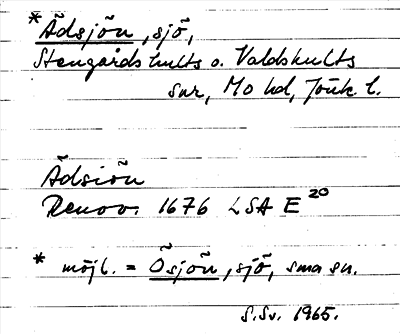 *Ädsjön, sjö,
Stengårdshults o. Valdshults
snr, Mo hd, Jönk l.
Ädsiön
Renov. 1676 LSA E 20
* möjl. = Ösjön, sjö, sma sn.
S. Sv. 1965.